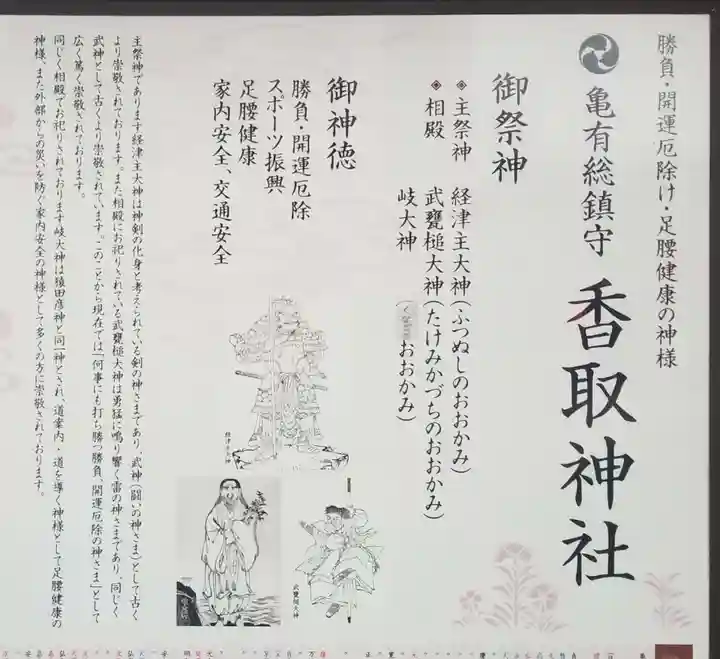 勝負・開運厄除け・足腰健康の神様
亀有総鎮守 香取神社
御祭神
主祭神 経津主大神(ふつぬしのおおかみ)
相殿 武甕槌大神(たけみかづちのおおかみ)
岐大神(くなどのおおかみ)
御神徳
勝負・開運厄除
スポーツ振興
足腰健康
家内安全、交通安全
主祭神であります経津主大神は神剣の化身と考えられている剣の神さまであり、武神(闘いの神さま)として古く
より崇敬されております。また相殿にお祀りされている武甕槌大神は勇猛に鳴り響く雷の神さまであり、同じく
武神として古くより崇敬されています。このことから現在では「何事にも打ち勝つ勝負、開運厄除の神さま」として
広く篤く崇敬されております。
同じく相殿でお祀りされております岐大神は猿田彦神と同一神とされ、道案内・道を導く神様として足腰健康の
神様、また外部からの災いを防ぐ家内安全の神様として多くの方に崇敬されております。
経津主大神
武甕槌大神